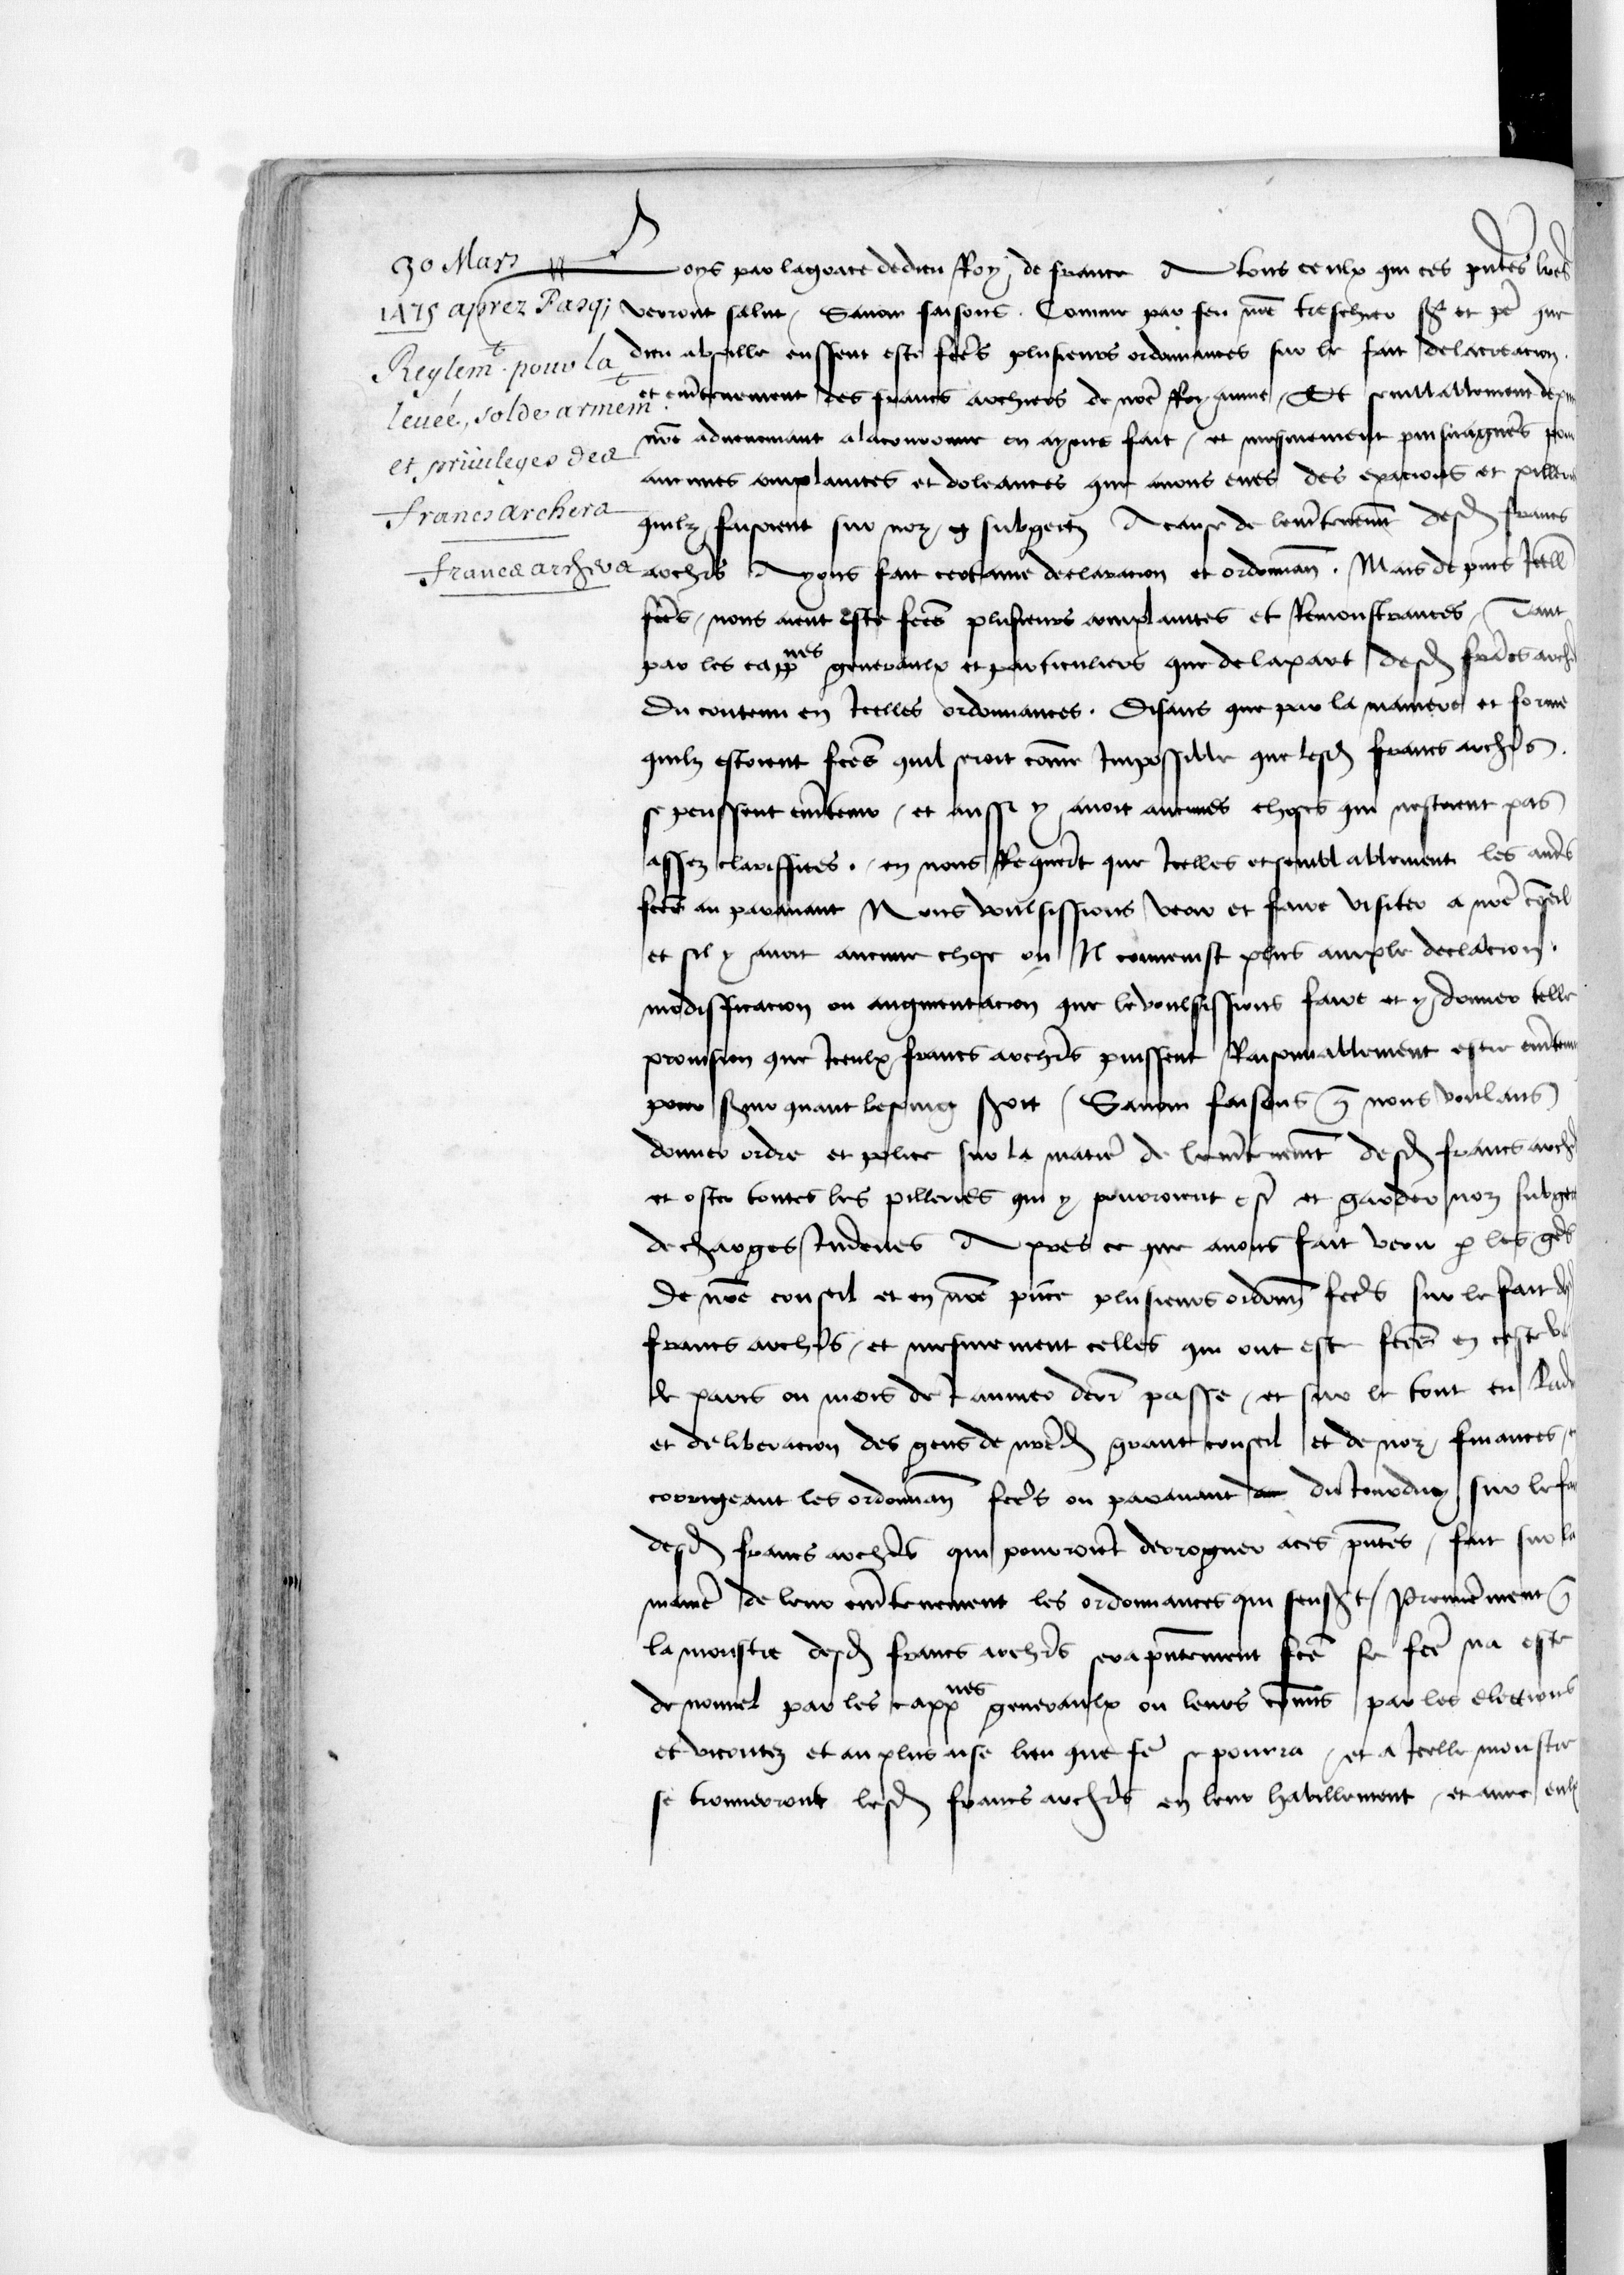 30 Mars
1475 aprez Pasq;
Reglemt. pour la
leuée, solde armemt.
et priuileges des
francs archers
francs archers
Loys par lagrace dedieu Roy de france A tous ceulx qui ces pntes lres
verront salut, Sauoir faisons. Comme par feu nre treschier sgr et pe que
dieu absoille eussent este fces plusieurs ordonnances sur le fait delacreacion.
et entretenement des francs archiers de nre Royaume, Et semblablement depuis
nre aduenemant alacouronne en ayons fait, et mesmement puisnagueres pour
aucunes complaintes et doleances que auons eues des exacions et pilleries
quilz faisoient sur noz subgectz A cause de lentretenemt desd francs
archrs Ayons fait certaine declaracion et ordonnan. Mais depuis Icell
fces, nous aient este fces plusieurs complaintes et Remonstrances, Tant
par les cappnes generaulx et particuliers que delapart desd francs archrs
Du contenu en Icelles ordonnances. Disans que par la maniere et forme
quilz estoient fces quil seroit comme Impossible que lesd francs archrs.
se peussent entretenir, et aussi y auoit aucunes choses qui nestoient pas
assez clariffiees. en nous Requert que Icelles et semblablement les autres
fces au parauant Nous voulsissions veoir et faire visiter a nre conseil
et sil y auoit aucune chose ou Il conuenist plus ample declaracion.
modifficacion ou augmentacion que levoulsissions faire et y donner telle
prouision que Iceulx francs archrs puissent Raisonnablement estre entretenuz
pour seruir quant besoing seroit, Sauoir faisons que nous voulans
donner ordre et police sur la matiere de lentretenemt desd francs archrs
et oster toutes les pilleries qui y pourroient estre et garder noz subgetz
de charges Indeues Apres ce que auons fait veoir p les gens
De nre conseil et en nre pnce plusieurs ordonnan fces sur le fait desd
francs archrs, et mesmement celles qui ont este fces en ceste ville
de paris ou mois de Januier derr passe, et sur le tout eu Ladu
et deliberacion des gens de nred grant conseil et de noz finances, en
corrigeant les ordonnan fces ou parauant du Jourduy sur le fait
desd francs archrs qui pourroient derroguer aces pntes, fait sur la
maniere de leur entretenement les ordonnances qui sensuiuent, Premierement que
la monstre desd francs archrs sera pntement fce se fce na este
de nouuel par les cappnes generaulx ou leurs commis par les elections
et vicontez et au plus aise lieu que fe se pourra, et a Icelle monstre
se trouueront lesd francs archrs en leur habillement, et auec eulx